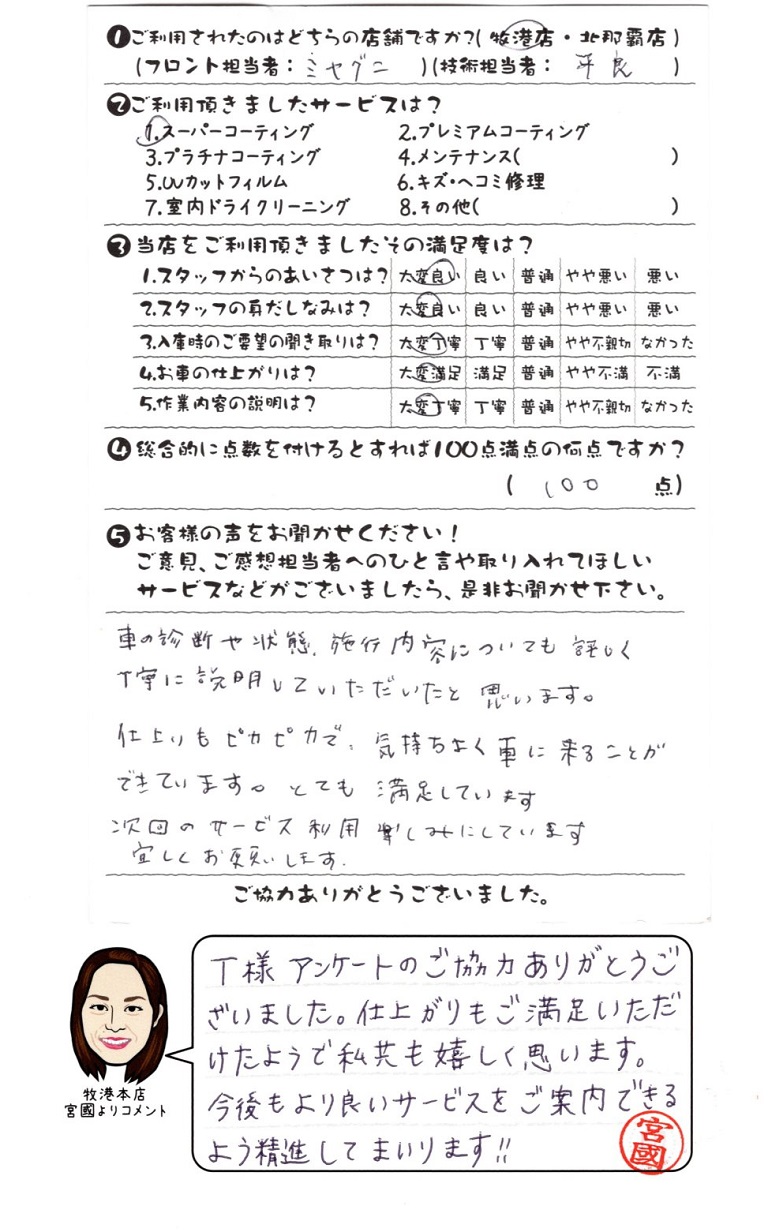 ❶ご利用されたのはどちらの店舗ですか?(牧港店・北那覇店)
(フロント担当者:ミヤグニ)(技術担当者:平良)
❷ご利用頂きましたサービスは?
1.スーパーコーティング 2.プレミアムコーティング
3.プラチナコーティング 4.メンテナンス( )
5.UVカットフィルム 6.キズ・ヘコミ修理
7.室内ドライクリーニング 8.その他( )
❸当店をご利用頂きましたその満足度は?
1.スタッフからのあいさつは? 大変良い 良い 普通 やや悪い 悪い
2.スタッフの身だしなみは? 大変良い 良い 普通 やや悪い 悪い
3.入庫時のご要望の聞き取りは? 大変丁寧 丁寧 普通 やや不親切 なかった
4.お車の仕上がりは? 大変満足 満足 普通 やや不満 不満
5.作業内容の説明は? 大変丁寧 丁寧 普通 やや不親切 なかった
❹総合的に点数を付けるとすれば100点満点の何点ですか?
(100点)
❺お客様の声をお聞かせください!
ご意見、ご感想担当者へのひと言や取り入れてほしい
サービスなどがございましたら、是非お聞かせ下さい。
車の診断や状態、施行内容についても詳しく
丁寧に説明していただいたと思います。
仕上りもピカピカで、気持ちよく車に来ることが
できています。とても満足しています
次回のサービス利用楽しみにしています
宜しくお願いします.
ご協力ありがとうございました。
T様 アンケートのご協力ありがとうご
ざいました。仕上がりもご満足いただ
けたようで私共も嬉しく思います。
今後もより良いサービスをご案内できる
よう精進してまいります!!
宮國
牧港本店
宮國よりコメント